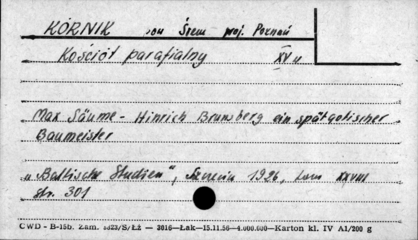 KÓRNIK pow Śrem woj. Poznań
Kościół parafialny XV w
Max Säume - Hinrich Brunsberg ein spätgotischer
Baumeister
„Baltische Studien", Szczecin 1926, tom XXVIII
str. 301
CWD - B-15b. Zam. 5823/S/Łż — 3016—Łak—15.11.56—4.000.000—Karton kl. IV A1/200 g